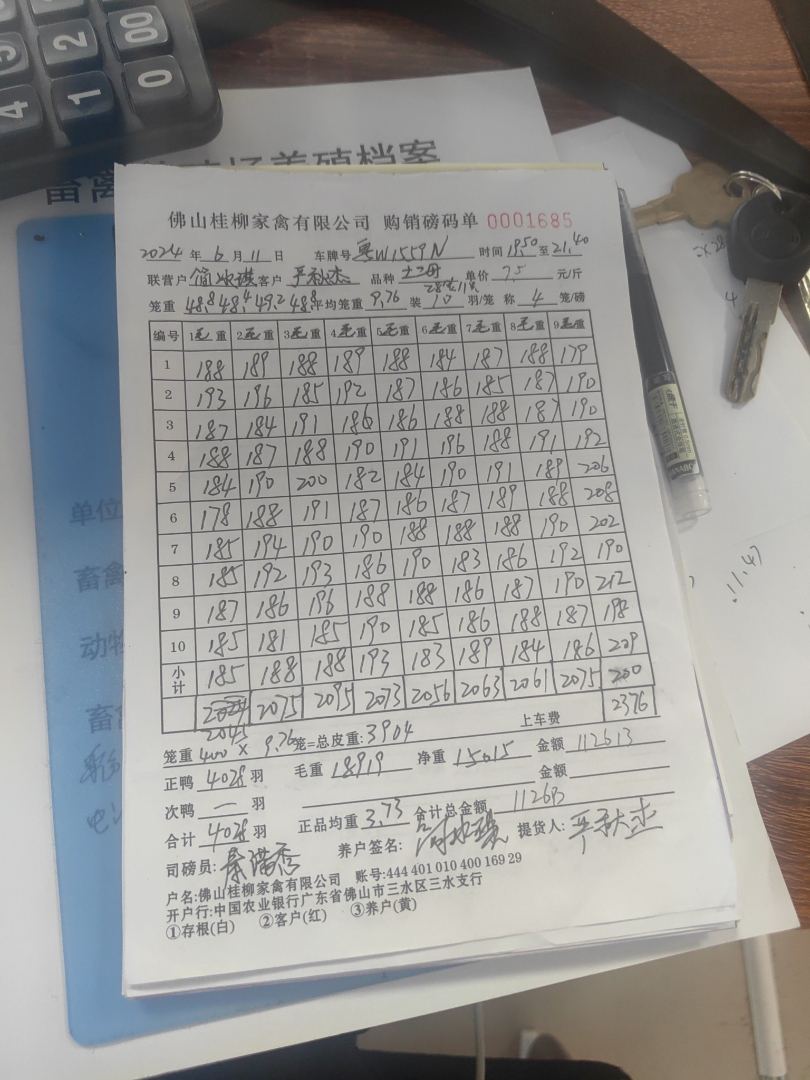 4 1 0
2 00
畜禽养殖场养殖档案
佛山桂柳家禽有限公司 购销磅码单 0001685
2024 年 6 月 11 日 车牌号 粤W1559N 时间 19.50 至 21.40
联营户 客户 严秋杰 品种 土二母 单价 7.5 元/斤
笼重 48.8 48.4 49.2 48.8 平均笼重 9.76 装 10 羽/笼 称 4 笼/磅
编号 1毛重 2毛重 3毛重 4毛重 5毛重 6毛重 7毛重 8毛重 9毛重
1 188 189 188 189 188 184 187 188 179
2 193 196 185 192 187 186 185 187 190
3 187 184 191 186 186 188 188 187 190
4 188 187 188 190 191 196 188 191 192
5 184 190 200 182 184 190 191 189 206
6 178 188 191 187 186 187 189 188 208
7 185 194 190 190 188 188 188 190 202
8 185 192 193 186 190 183 186 192 190
9 187 186 196 188 188 186 187 190 212
10 185 181 185 190 185 186 188 187 198
小计 185 188 188 193 183 189 184 186 209
2075 2095 2073 2056 2063 2061 2075 200
2045 2376
笼重 400 × 9.76 笼=总皮重: 3904 上车费
正鸭 4028 羽 毛重 18919 净重 15015 金额 112613
次鸭 一 羽 金额
合计 4028 羽 正品均重 3.73 合计总金额 112613
司磅员: 养户签名: 提货人: 严秋杰
户名:佛山桂柳家禽有限公司 账号:444 401 010 400 169 29
开户行:中国农业银行广东省佛山市三水区三水支行
①存根(白) ②客户(红) ③养户(黄)
单位
畜禽
动物
畜禽
11.47